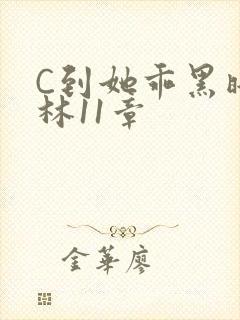 C到她乖黑时
林11章
金華廖